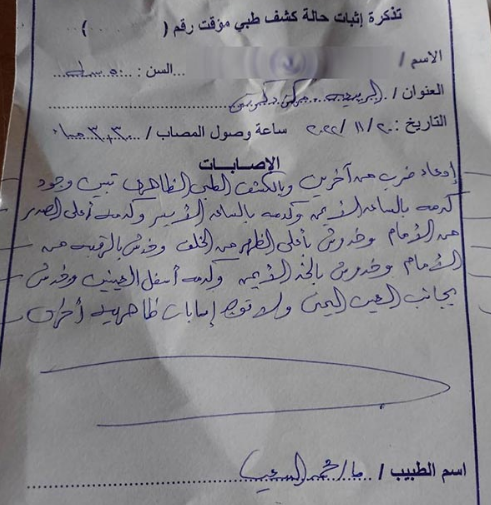 تذكرة إثبات حالة كشف طبي مؤقت رقم ( )
الاسم /
السن : ٥٠ سنة
العنوان / مركز دكرنس
التاريخ : ٢٠ / ١١ / ٢٠٢٢ ساعة وصول المصاب / ٣,٣٠ مساء
الإصابات
إدعاء ضرب من آخرين وبالكشف الطبي الظاهري تبين وجود
كدمه بالساعد الأيمن وكدمه بالساعد الأيسر وكدمه أعلى الصدر
من الأمام وخدوش بأعلى الظهر من الخلف وخدش بالرقبه من
الأمام وخدوش بالخد الأيمن وكدمه أسفل العينين وخدش
بجانب العين اليمنى ولا توجد إصابات ظاهريه أخرى
اسم الطبيب / محمد السعيد